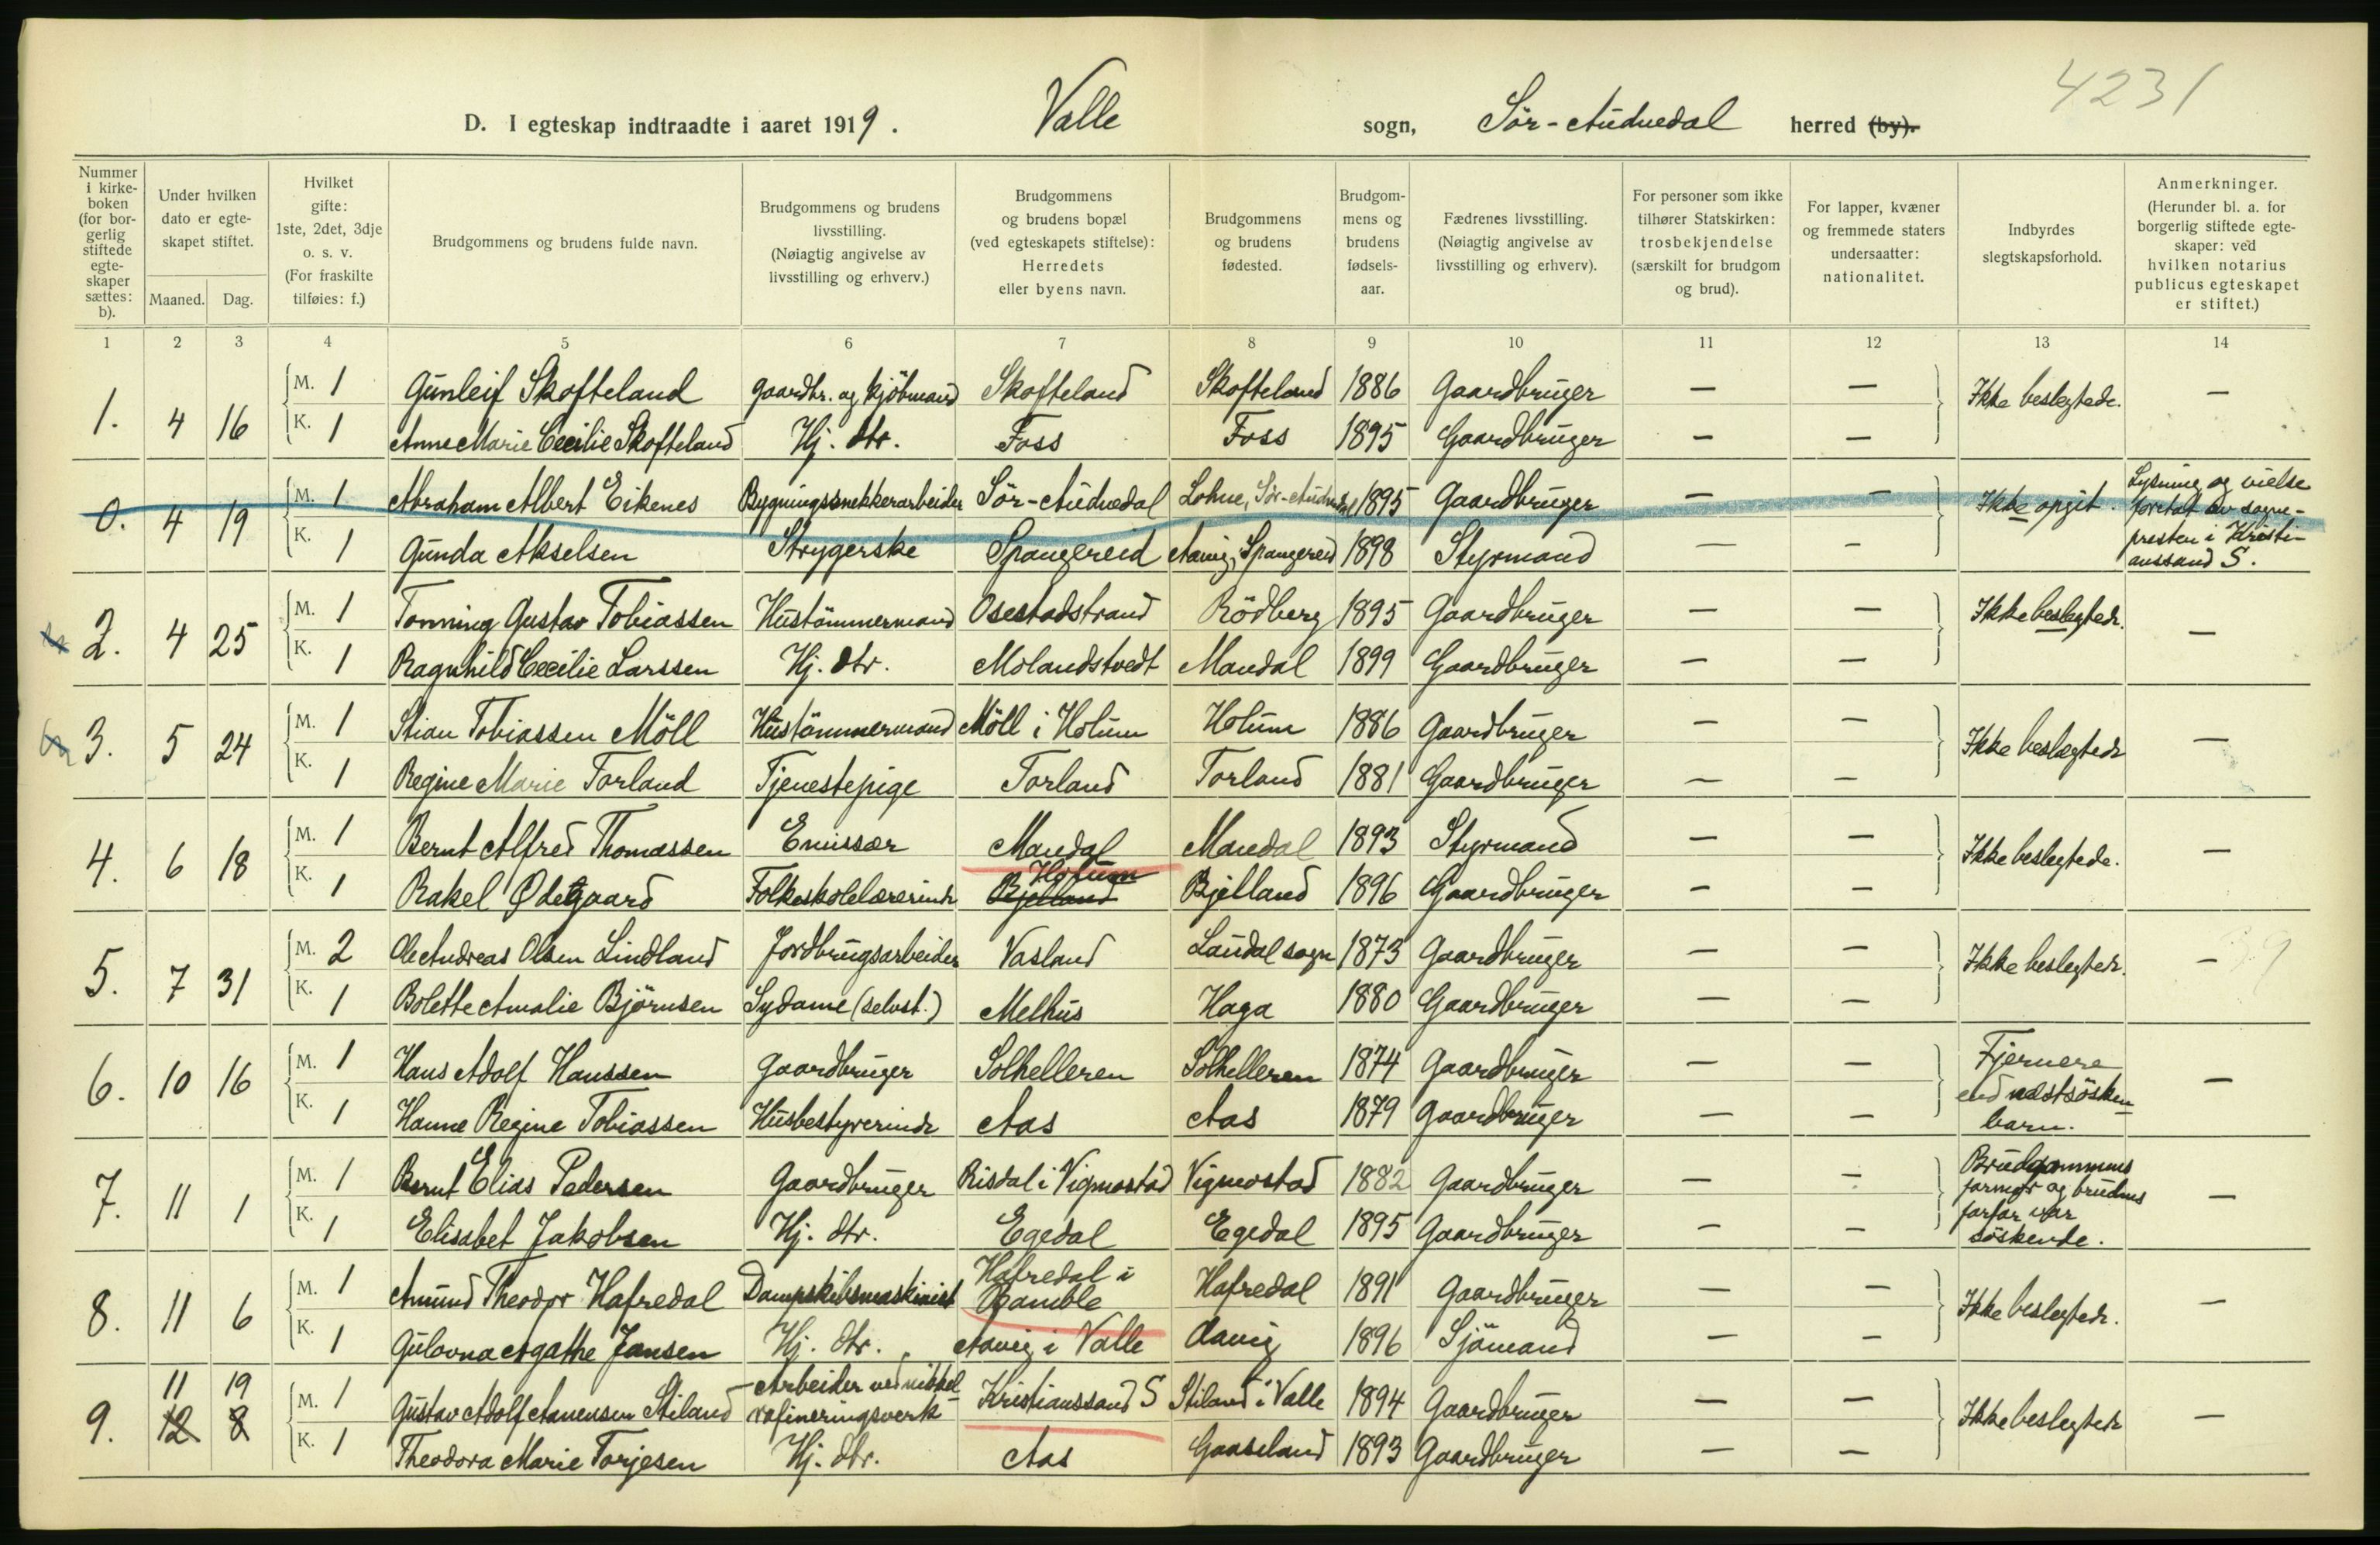 4231
D. I egteskap indtraadte i aaret 1919. Valle sogn, Sör-Audnedal herred (by).
Nummer i kirkeboken (for borgerlig stiftede egteskaper sættes: b).
Under hvilken dato er egteskapet stiftet.
Maaned. Dag.
Hvilket gifte: 1ste, 2det, 3dje o. s. v. (For fraskilte tilføies: f.)
Brudgommens og brudens fulde navn.
Brudgommens og brudens livsstilling. (Nøiagtig angivelse av livsstilling og erhverv.)
Brudgommens og brudens bopæl (ved egteskapets stiftelse): Herredets eller byens navn.
Brudgommens og brudens fødested.
Brudgommens og brudens fødselsaar.
Fædrenes livsstilling. (Nøiagtig angivelse av livsstilling og erhverv).
For personer som ikke tilhører Statskirken: trosbekjendelse (særskilt for brudgom og brud).
For lapper, kvæner og fremmede staters undersaatter: nationalitet.
Indbyrdes slegtskapsforhold.
Anmerkninger. (Herunder bl. a. for borgerlig stiftede egteskaper: ved hvilken notarius publicus egteskapet er stiftet.)
1 2 3 4 5 6 7 8 9 10 11 12 13 14
1. 4 16 M. 1 Gunleif Skofteland Gaardbr. og kjöbmand Skofteland Skofteland 1886 Gaardbruger — — Ikke beslegtede. —
K. 1 Anne Marie Cecilie Skofteland Hj. dtr. Foss Foss 1895 Gaardbruger — —
0. 4 19 M. 1 Abraham Albert Eikenes Bygningssnekkerarbeider Sör-Audnedal Lohne, Sör-Audnedal 1895 Gaardbruger — — Ikke opgit. Lysning og vielse foretat av sognepresten i Kristianssand S.
K. 1 Gunda Akselsen Strygerske Spangereid Aavig, Spangereid 1898 Styrmand — —
2. 4 25 M. 1 Tonning Gustav Tobiassen Hustömmermand Osestadstrand Rödberg 1895 Gaardbruger — — Ikke beslegtede. —
K. 1 Ragnhild Cecilie Larssen Hj. dtr. Molandstvedt Mandal 1899 Gaardbruger — —
3. 5 24 M. 1 Stian Tobiassen Möll Hustömmermand Möll i Holum Holum 1886 Gaardbruger — — Ikke beslegtede —
K. 1 Regine Marie Torland Tjenestepige Torland Torland 1881 Gaardbruger — —
4. 6 18 M. 1 Bernt Alfred Thomassen Emissær Mandal Mandal 1893 Styrmand — — Ikke beslegtede. —
K. 1 Rakel Ødegaard Folkeskolelærerinde Bjelland Holum Bjelland 1896 Gaardbruger — —
5. 7 31 M. 2 Ole Andreas Olsen Lindland Jordbrugsarbeider Vasland Laudal sogn 1873 Gaardbruger — — Ikke beslegtede. —
K. 1 Bolette Amalie Björnsen Sydame (selvst.) Melhus Haga 1880 Gaardbruger — —
6. 10 16 M. 1 Hans Adolf Hanssen Gaardbruger Solhelleren Solhelleren 1874 Gaardbruger — — Fjernere end næstsöskenbarn. —
K. 1 Hanne Regine Tobiassen Husbestyrerinde Aas Aas 1879 Gaardbruger — —
7. 11 1 M. 1 Bernt Elias Pedersen Gaardbruger Risdal i Vigmostad Vigmostad 1882 Gaardbruger — — Brudgommens farmor og brudens farfar var söskende. —
K. 1 Elisabet Jakobsen Hj. dtr. Egedal Egedal 1895 Gaardbruger — —
8. 11 6 M. 1 Amund Theodor Hafredal Dampskibsmaskinist Hafredal i Bamble Hafredal 1891 Gaardbruger — — Ikke beslegtede. —
K. 1 Gulovna Agathe Jansen Hj. dtr. Aavig i Valle Aavig 1896 Sjömand — —
9. 11 19 12 8 M. 1 Gustav Adolf Aanensen Stiland Arbeider ved nikkelrafineringsverk Kristianssand S Stiland i Valle 1894 Gaardbruger — — Ikke beslegtede —
K. 1 Theodora Marie Torjesen Hj. dtr. Aas Gaaseland 1893 Gaardbruger — —